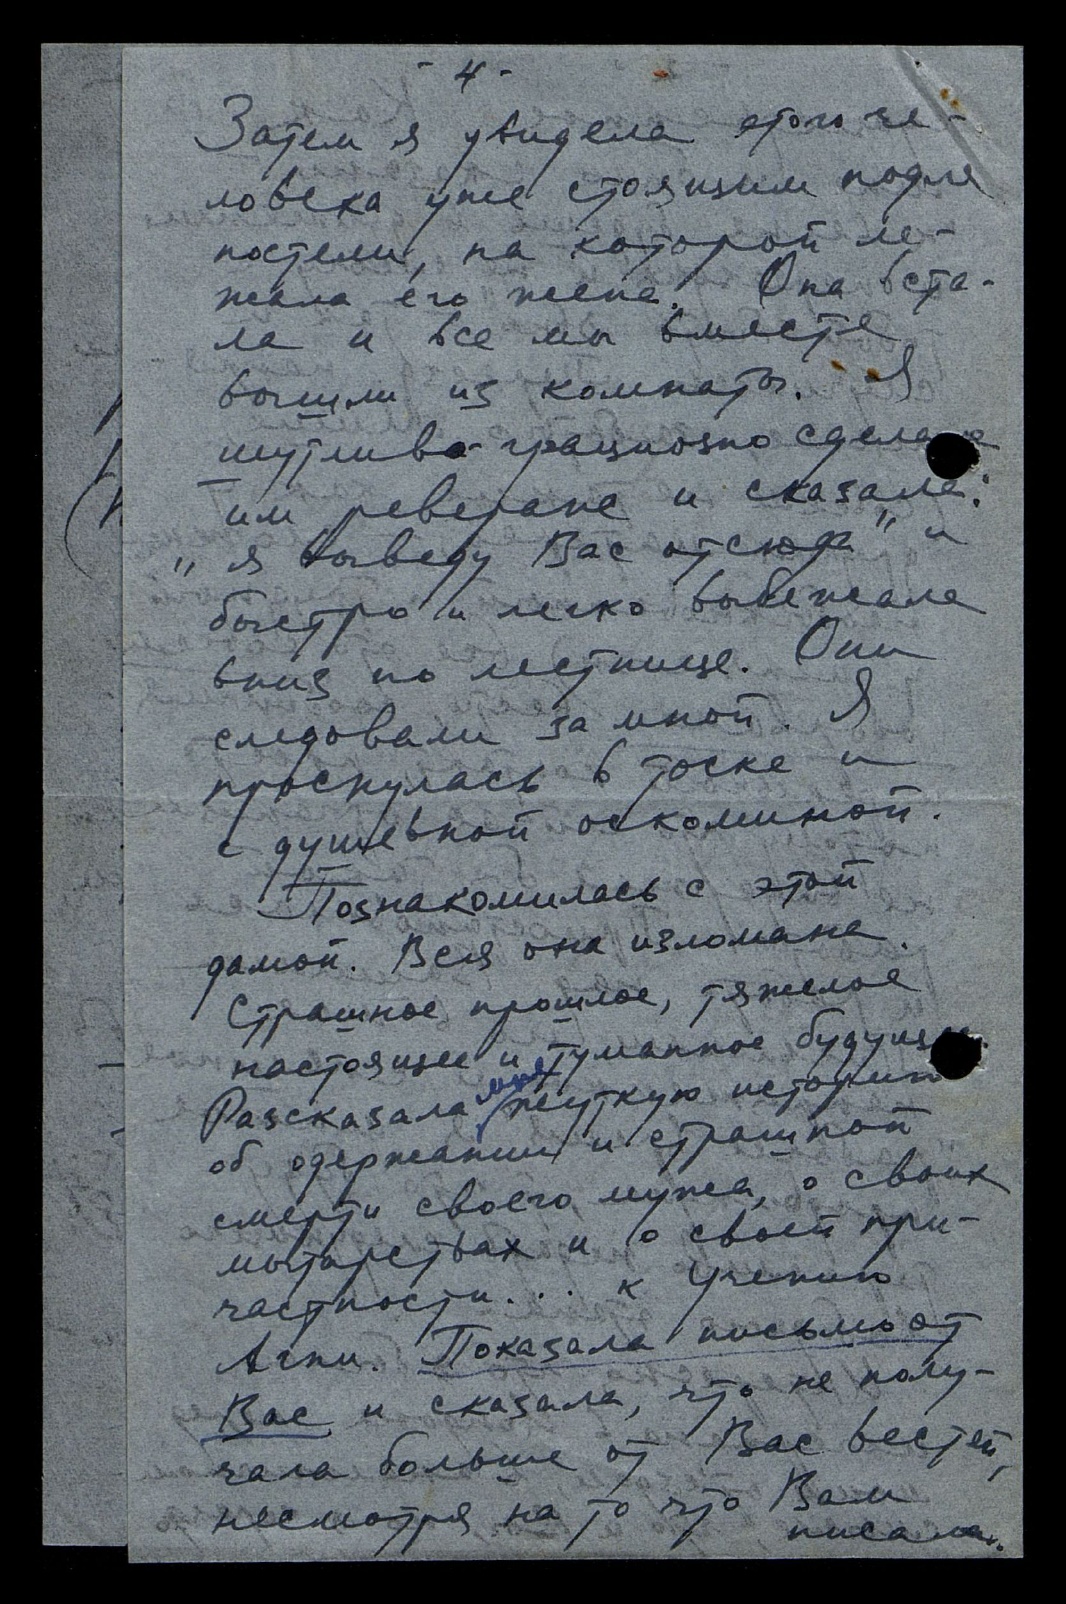 - 4 -
Затем я увидела этого че-
ловека уже стоящим подле
постели, на которой ле-
жала его жена. Она вста-
ла и все мы вместе
вышли из комнаты. Я
шутливо-грациозно сделала
им реверанс и сказала:
"Я выведу Вас отсюда" и
быстро и легко выбежала
вниз по лестнице. Они
следовали за мной. Я
проснулась в тоске и
с душевной оскоминой.
Познакомилась с этой
дамой. Вся она изломана.
Страшное прошлое, тяжелое
настоящее и туманное будущее.
Разсказала мне жуткую историю
об одержании и страшной
смерти своего мужа, о своих
мытарствах и о своей при-
частности... к Учению
Агни. Показала письмо от
Вас и сказала, что не полу-
чала больше от Вас вестей,
несмотря на то что Вам
писала.